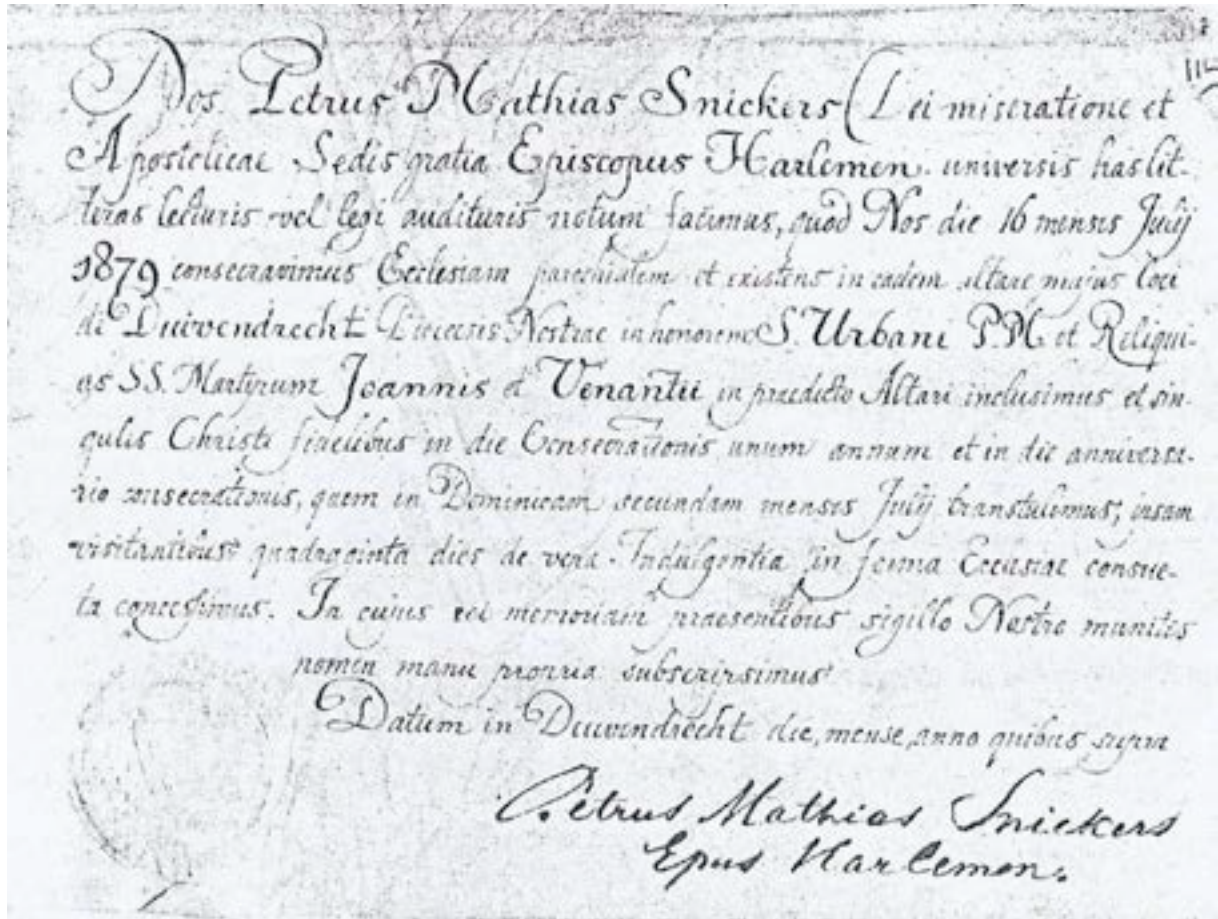 Nos Petrus Mathias Snickers (Dei miseratione et
Apostolicae Sedis gratia Episcopus Harlemen. universis has lit-
teras lecturis vel legi audituris notum facimus, quod Nos die 16 mensis Julij
1879 consecravimus Ecclesiam parochialem et existens in eadem altare majus loci
de Duivendrecht Diocesis Nostrae in honorem S. Urbani P. M. et Reliqui-
as SS. Martyrum Joannis et Venantii in praedicto Altari inclusimus et sin-
gulis Christi fidelibus in die Consecrationis unum annum et in die anniversa-
rio consecrationis, quem in Dominicam secundam mensis Julij transtulimus, ipsam
visitantibus quadraginta dies de vera Indulgentia in forma Ecclesiae consue-
ta concessimus. In cujus rei memoriam praesentibus sigillo Nostro munitis
nomen manu propria subscripsimus
Datum in Duivendrecht die, mense, anno quibus supra
Petrus Mathias Snickers
Epus Harlemen.